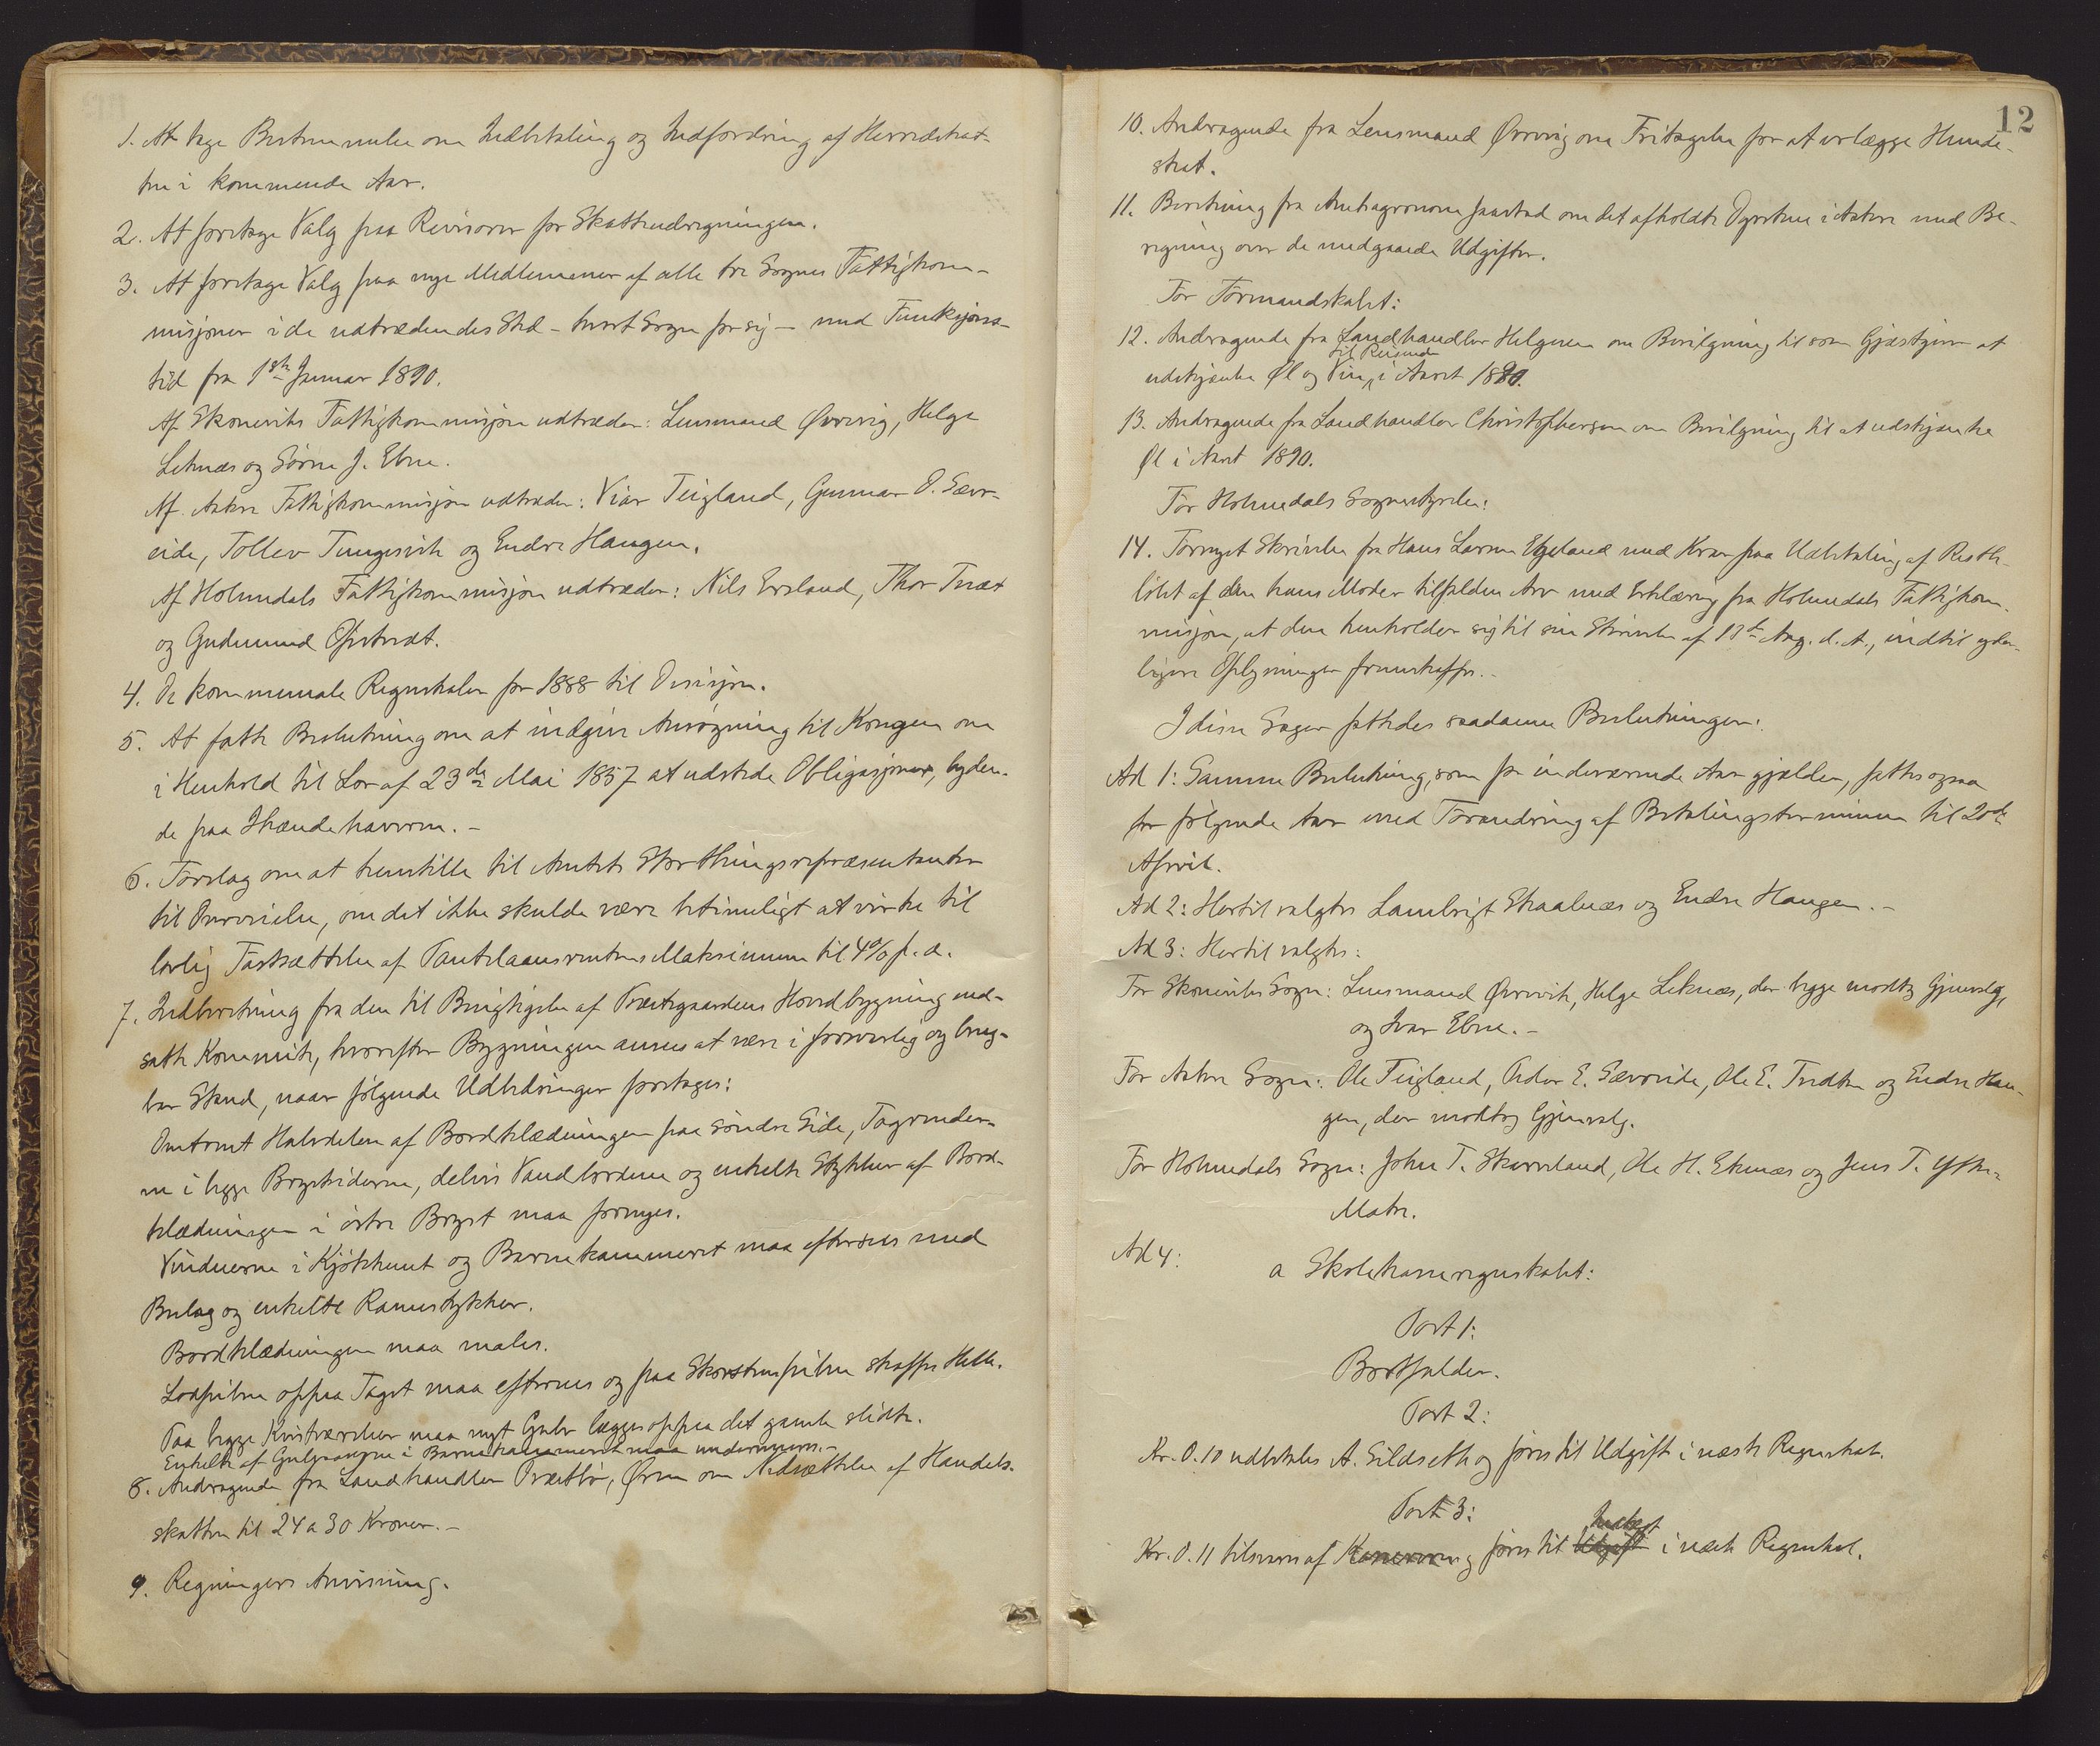 1. At tage Bestemmelse om Indbetaling og Indfordring af Herredskat-
ten i kommende Aar.
2. At foretage Valg paa Revisorer for Skatteudregningen.
3. At foretage Valg paa nye Medlemmer af alle tre Sognes Fattigkom-
misjoner i de udtrædendes Sted - hvert Sogn for sig - med Funksjons-
tid fra 1ste Januar 1890.
Af Skoneviks Fattigkommisjon udtræder: Lensmand Øvrevig, Helge
Leknæs og Sørne J. Ebne.
Af Aakre Fattigkommisjon udtræder: Viar Teigland, Gunnar O. Sævr-
eide, Tollev Tungesvik og Endre Haugen.
Af Holmedals Fattigkommisjon udtræder: Nils Ersland, Thor Tvæt
og Gudmund Opstvæt.
4. De kommunale Regnskaber for 1888 til Desisjon.
5. At fatte Beslutning om at indgive Ansøgning til Kongen om
i Henhold til Lov af 23de Mai 1857 at udstede Obligasjoner, lyden-
de paa Ihændehaveren. -
6. Forslag om at henstille til Amtets Storthingsrepræsentanter
til Overveielse, om det ikke skulde være betimeligt at virke til
lovlig Fastsættelse af Pantelaansrentens Maksimum til 4% p. a.
7. Indberetning fra den til Besigtigelse af Præstegaardens Hovedbygning ned-
satte Kommite, hvorefter Bygningen ansees at være i forsvarlig og brug-
bar Stand, naar følgende Udbedringer foretages:
Omtrent Halvdelen af Bordklædningen paa søndre Side, Tagrender-
ne i begge Brystsiderne, delvis Vandbordene og enkelte Stykker af Bord-
klædningen i østre Bryst maa fornyes.
Vinduerne i Kjøkkenet og Barnekammeret maa eftersees med
Beslag og enkelte Ramestykker.
Bordklædningen maa males.
Lodpiben oppaa Taget maa eftersees og paa Skorstenspiben skaffes Helle.
Paa begge Kvistværelser maa nyt Gulv lægges oppaa det gamle slidte.
Enkelte af Gulvaasene i Barnekammeret maa undermures. -
8. Andragende fra Landhandler Præstbø, Ølen om Nedsættelse af Handels-
skatten til 24 a 30 Kroner. -
9. Regningers Anvisning.
12
10. Andragende fra Lensmand Øvrevig om Fritagelse for at erlægge Hunde-
skat.
11. Beretning fra Amtsagronom Jaastad om det afholdte Dyrskue i Aakre med Be-
regning over de medgaaede Udgifter.
For Formandskabet:
12. Andragende fra Landhandler Helgesen om Bevilgning til som Gjæstgiver at
til Reisende
udskjænke Øl og Vin, i Aaret 1890.
13. Andragende fra Landhandler Christophersen om Bevilgning til at udskjænke
Øl i Aaret 1890.
For Holmedals Sognestyrelse:
14. Fornyet Skrivelse fra Hans Larsen Ekeland med Krav paa Udbetaling af Reste-
løbet af den hans Moder tilfaldne Arv med Erklæring fra Holmedals Fattigkom-
misjon, at den henholder sig til sin Skrivelse af 18de Aug. d. A., indtil yder-
ligere Oplysninger fremskaffes. -
I disse Sager fattedes saadanne Beslutninger:
Ad 1: Samme Beslutning, som for indeværende Aar gjælder, fattes ogsaa
for følgende Aar med Forandring af Betalingsterminen til 20de
April.
Ad 2: Hertil valgtes Lambrigt Skaalnæs og Endre Haugen. -
Ad 3: Hertil valgtes:
For Skoneviks Sogn: Lensmand Øvrevik, Helge Leknæs, der begge modtog Gjenvalg,
og Ivar Ebne. -
For Aakre Sogn: Ole Teigland, Peder E. Sævreide, Ole E. Tvedten og Endre Hau-
gen, der modtog Gjenvalg.
For Holmedals Sogn: John T. Skarveland, Ole H. Eknæs og Jens T. Ytre-
Matre.
Ad 4:
a Skolekasseregnskabet:
Post 1:
Bortfalder.
Post 2:
Kr. 0.10 udbetales A. Sildseth og føres til Udgift i næste Regnskab.
Post 3:
Indtægt
Kr. 0.11 tilsvares af Kassereren og føres til Udgift i næste Regnskab.